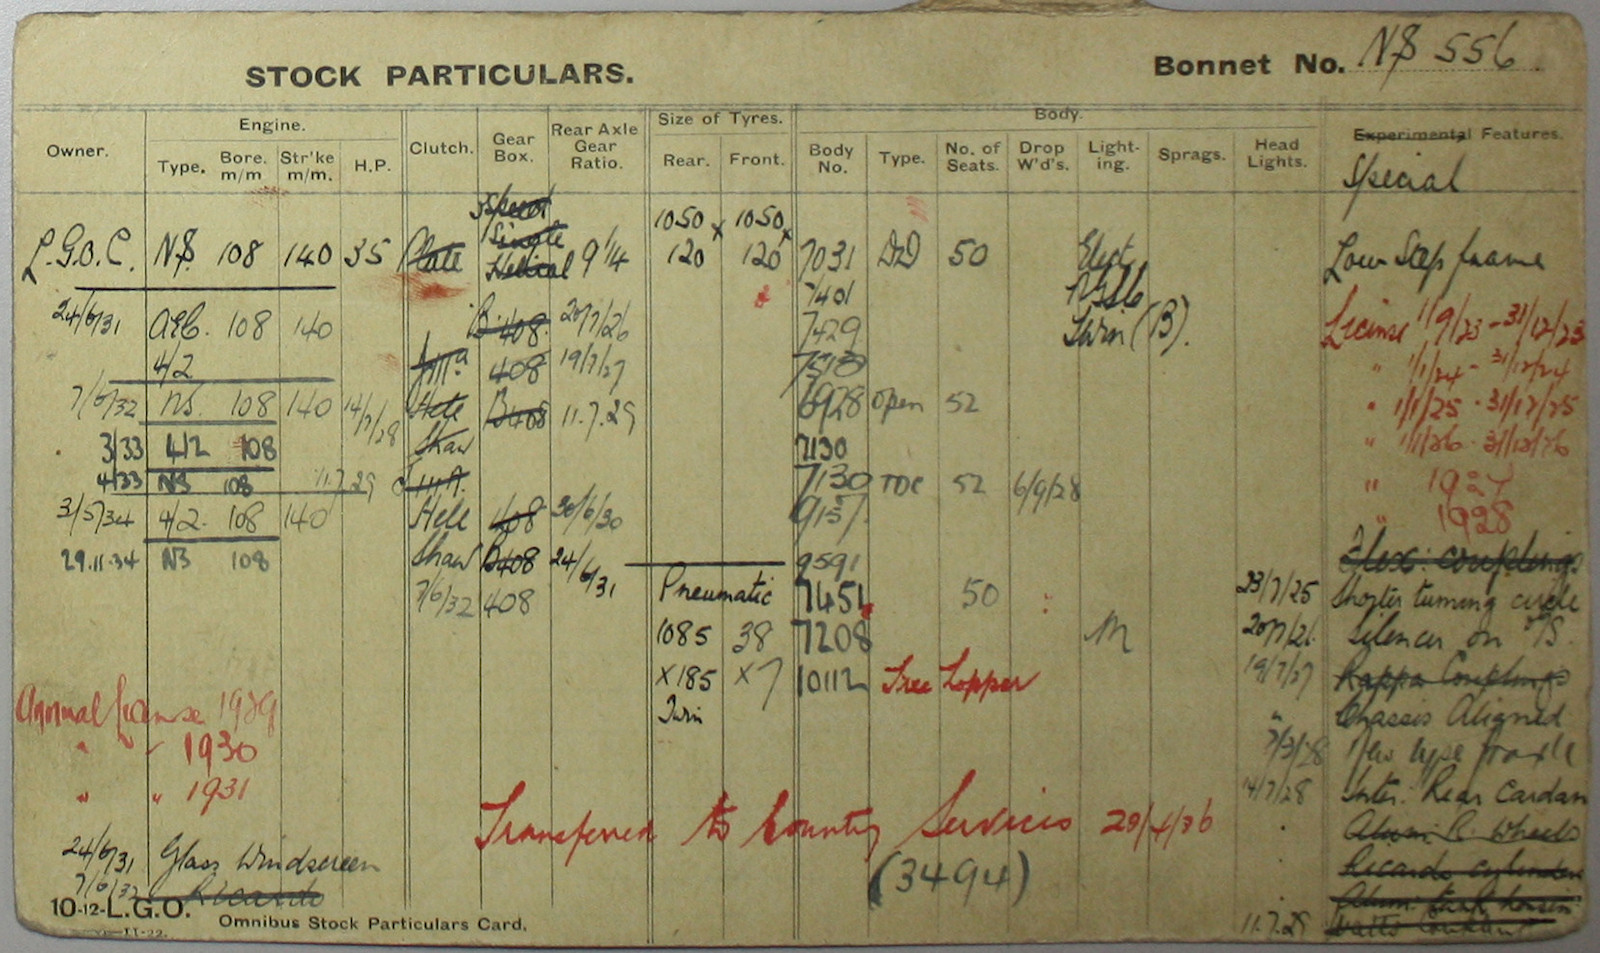 STOCK PARTICULARS. Bonnet No. NS 556
Owner. Engine. Clutch. Gear Box. Rear Axle Gear Ratio. Size of Tyres. Body. Experimental Features.
Type. Bore. m/m Str'ke m/m. H.P. Rear. Front. Body No. Type. No. of Seats. Drop W'd's. Light-ing. Sprags. Head Lights. Special
3 Speed
Single 1050 x 1050 x
L.G.O.C. NS. 108 140 35 Plate Helical 9 1/4 120 120 7031 DD 50 Elect. Low Step frame
7401
24/6/31 AEC. 108 140 B.408. 20/7/26 7429 Twin (B). License 1/9/23 - 31/12/23
4/2 408 19/7/27 " 1/1/24 - 31/12/24
7/6/32 NS. 108 140 14/7/28 Hele B408 11.7.29 6928 Open 52 " 1/1/25 - 31/12/25
3/33 4/2 108 Shaw 7130 " 1/1/26 - 31/12/26
4/33 NS 108 11.7.29 7130 TDC 52 6/9/28 " 1927
3/5/34 4/2. 108 140 Hele 408 30/6/30 9157 " 1928
29.11.34 NS 108 Shaw B408 24/6/31 9591 Flex: couplings
7/6/32 408 Pneumatic 7451 50 23/7/25 Shorter turning circle
1085 38 7208 M 20/7/26 Silencer on /S.
x185 x7 10112 Tree Lopper 19/7/27 Kappa Couplings
Annual license 1929 Twin " Chassis Aligned
" " 1930 7/3/28 New type
" " 1931 14/7/28 Inter: Rear Cardan
Transferred to Country Services 29/4/36 Alum: R. Wheels
24/6/31 Glass Windscreen (3494) Ricardo cylinder
7/6/32 Ricardo
10-12-L.G.O. Omnibus Stock Particulars Card. 11.7.29